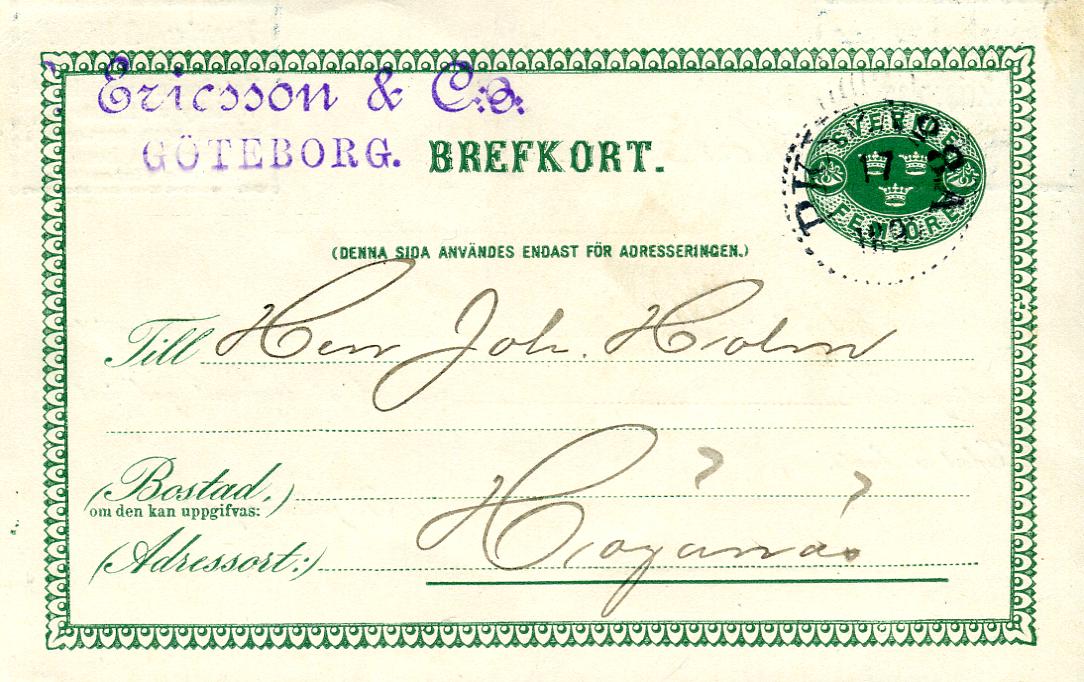 Ericsson & C:o.
GÖTEBORG.
BREFKORT.
SVERIGE
FEM ÖRE
17
(DENNA SIDA ANVÄNDES ENDAST FÖR ADRESSERINGEN.)
Till Herr Joh. Holm
(Bostad,)
om den kan uppgifvas:
(Adressort:) Höganäs